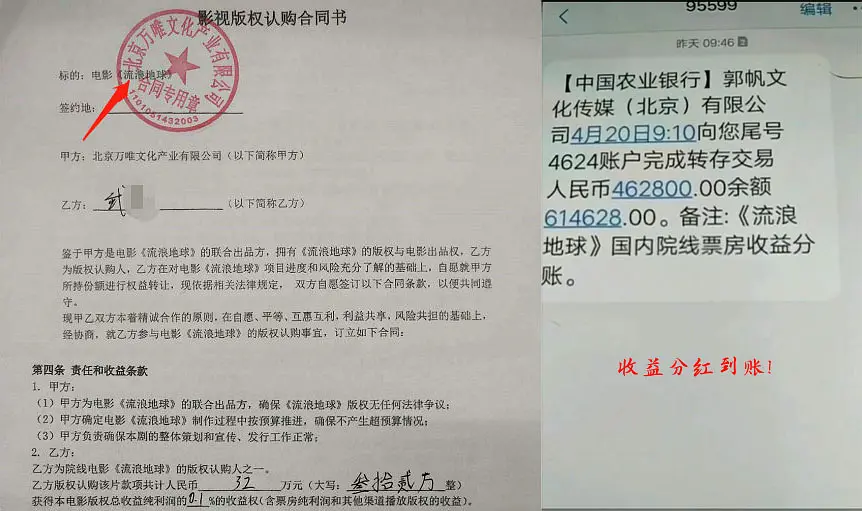 影视版权认购合同书
北京万唯文化产业有限公司
合同专用章
1101051432003
标的：电影《流浪地球》
签约地：
甲方：北京万唯文化产业有限公司（以下简称甲方）
乙方：武 （以下简称乙方）
鉴于甲方是电影《流浪地球》的联合出品方，拥有《流浪地球》的版权与电影出品权，乙方
为版权认购人，乙方在对电影《流浪地球》项目进度和风险充分了解的基础上，自愿就甲方
所持份额进行权益转让，现依据相关法律规定， 双方自愿签订以下合同条款，以便共同遵
守。
现甲乙双方本着精诚合作的原则，在自愿、平等、互惠互利，利益共享，风险共担的基础上，
经协商，就乙方参与电影《流浪地球》的版权认购事宜，订立如下合同：
第四条 责任和收益条款
1. 甲方：
（1）甲方为电影《流浪地球》的联合出品方，确保《流浪地球》版权无任何法律争议；
（2）甲方确定电影《流浪地球》制作过程中按预算推进，确保不产生超预算情况；
（3）甲方负责确保本剧的整体策划和宣传、发行工作正常；
2. 乙方：
乙方为院线电影《流浪地球》的版权认购人之一。
乙方版权认购该片款项共计人民币 32 万元（大写：叁拾贰万 整）
获得本电影版权总收益纯利润的0.1%的收益权（含票房纯利润和其他渠道播放版权的收益）。
95599
编辑
昨天 09:46
【中国农业银行】郭帆文
化传媒（北京）有限公
司4月20日9:10向您尾号
4624账户完成转存交易
人民币462800.00余额
614628.00。备注:《流浪
地球》国内院线票房收益分
账。
收益分红到账!